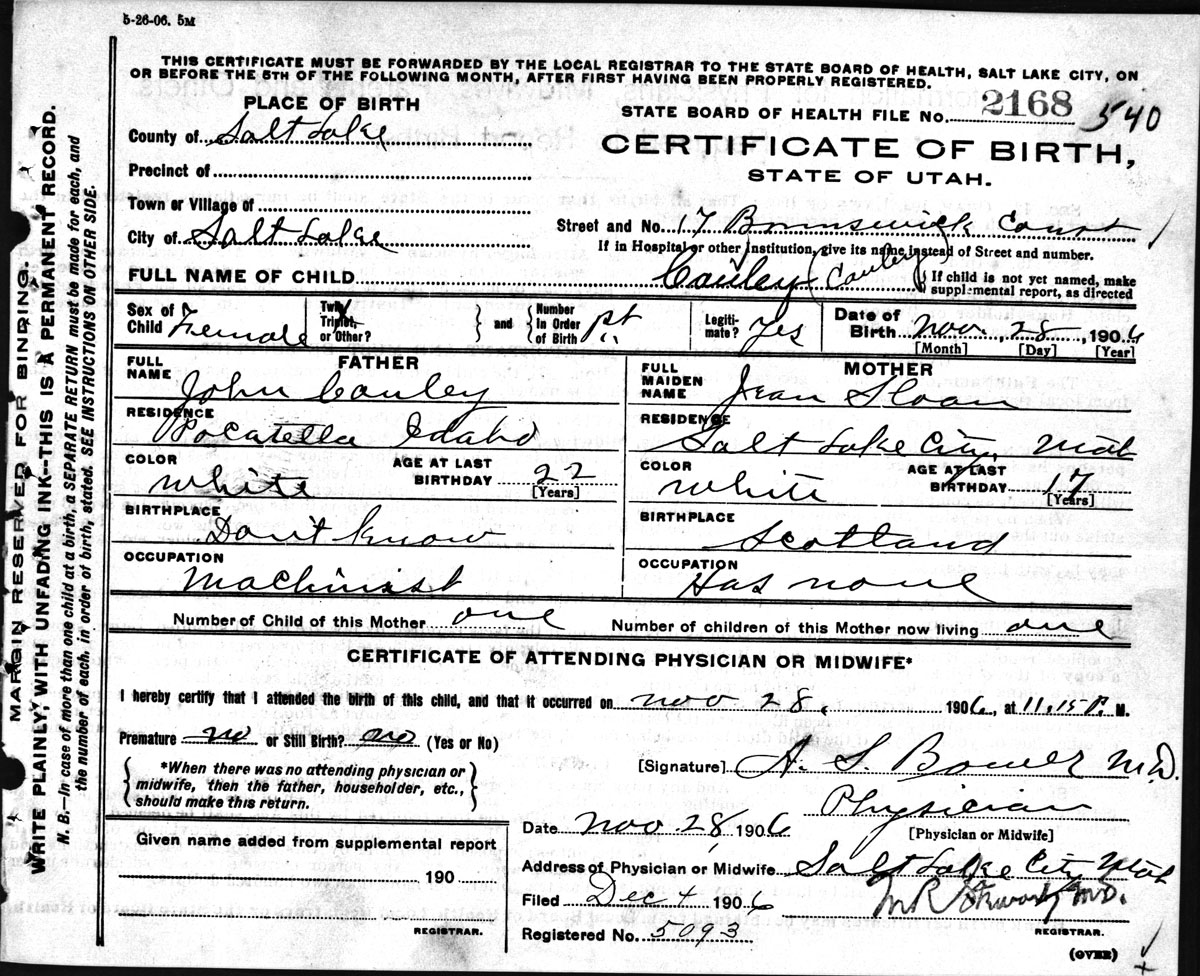 5-26-06. 5M
THIS CERTIFICATE MUST BE FORWARDED BY THE LOCAL REGISTRAR TO THE STATE BOARD OF HEALTH, SALT LAKE CITY, ON
OR BEFORE THE 5TH OF THE FOLLOWING MONTH, AFTER FIRST HAVING BEEN PROPERLY REGISTERED.
PLACE OF BIRTH
STATE BOARD OF HEALTH FILE No. 2168 540
County of Salt Lake
CERTIFICATE OF BIRTH,
STATE OF UTAH.
Precinct of
Town or Village of
City of Salt Lake
Street and No. 17 Brunswick Court
If in Hospital or other Institution, give its name instead of Street and number.
FULL NAME OF CHILD Cauley (Cauley)
If child is not yet named, make
supplemental report, as directed
Sex of Child Female
Twin, Triplet, or Other?
and
Number In Order of Birth
Legitimate? Yes
Date of Birth Nov. 28, 1906
[Month] [Day] [Year]
FATHER
FULL NAME John Cauley
RESIDENCE Pocatella Idaho
COLOR White
AGE AT LAST BIRTHDAY 22
[Years]
BIRTHPLACE Don't know
OCCUPATION Machinist
MOTHER
FULL MAIDEN NAME Jean Sloan
RESIDENCE Salt Lake City, Utah
COLOR White
AGE AT LAST BIRTHDAY 17
[Years]
BIRTHPLACE Scotland
OCCUPATION Has none
Number of Child of this Mother one
Number of children of this Mother now living one
CERTIFICATE OF ATTENDING PHYSICIAN OR MIDWIFE*
I hereby certify that I attended the birth of this child, and that it occurred on Nov. 28, 1906, at 11.15 P. M.
Premature no or Still Birth? no (Yes or No)
*When there was no attending physician or
midwife, then the father, householder, etc.,
should make this return.
[Signature] H. S. M.D.
Physician
[Physician or Midwife]
Date Nov 28, 1906
Address of Physician or Midwife Salt Lake City Utah
Filed Dec 4 1906
M.D.
REGISTRAR.
Registered No. 5093
(OVER)
Given name added from supplemental report
190
REGISTRAR.
MARGIN RESERVED FOR BINDING.
WRITE PLAINLY, WITH UNFADING INK--THIS IS A PERMANENT RECORD.
N. B.—In case of more than one child at a birth, a SEPARATE RETURN must be made for each, and
the number of each, in order of birth, stated. SEE INSTRUCTIONS ON OTHER SIDE.